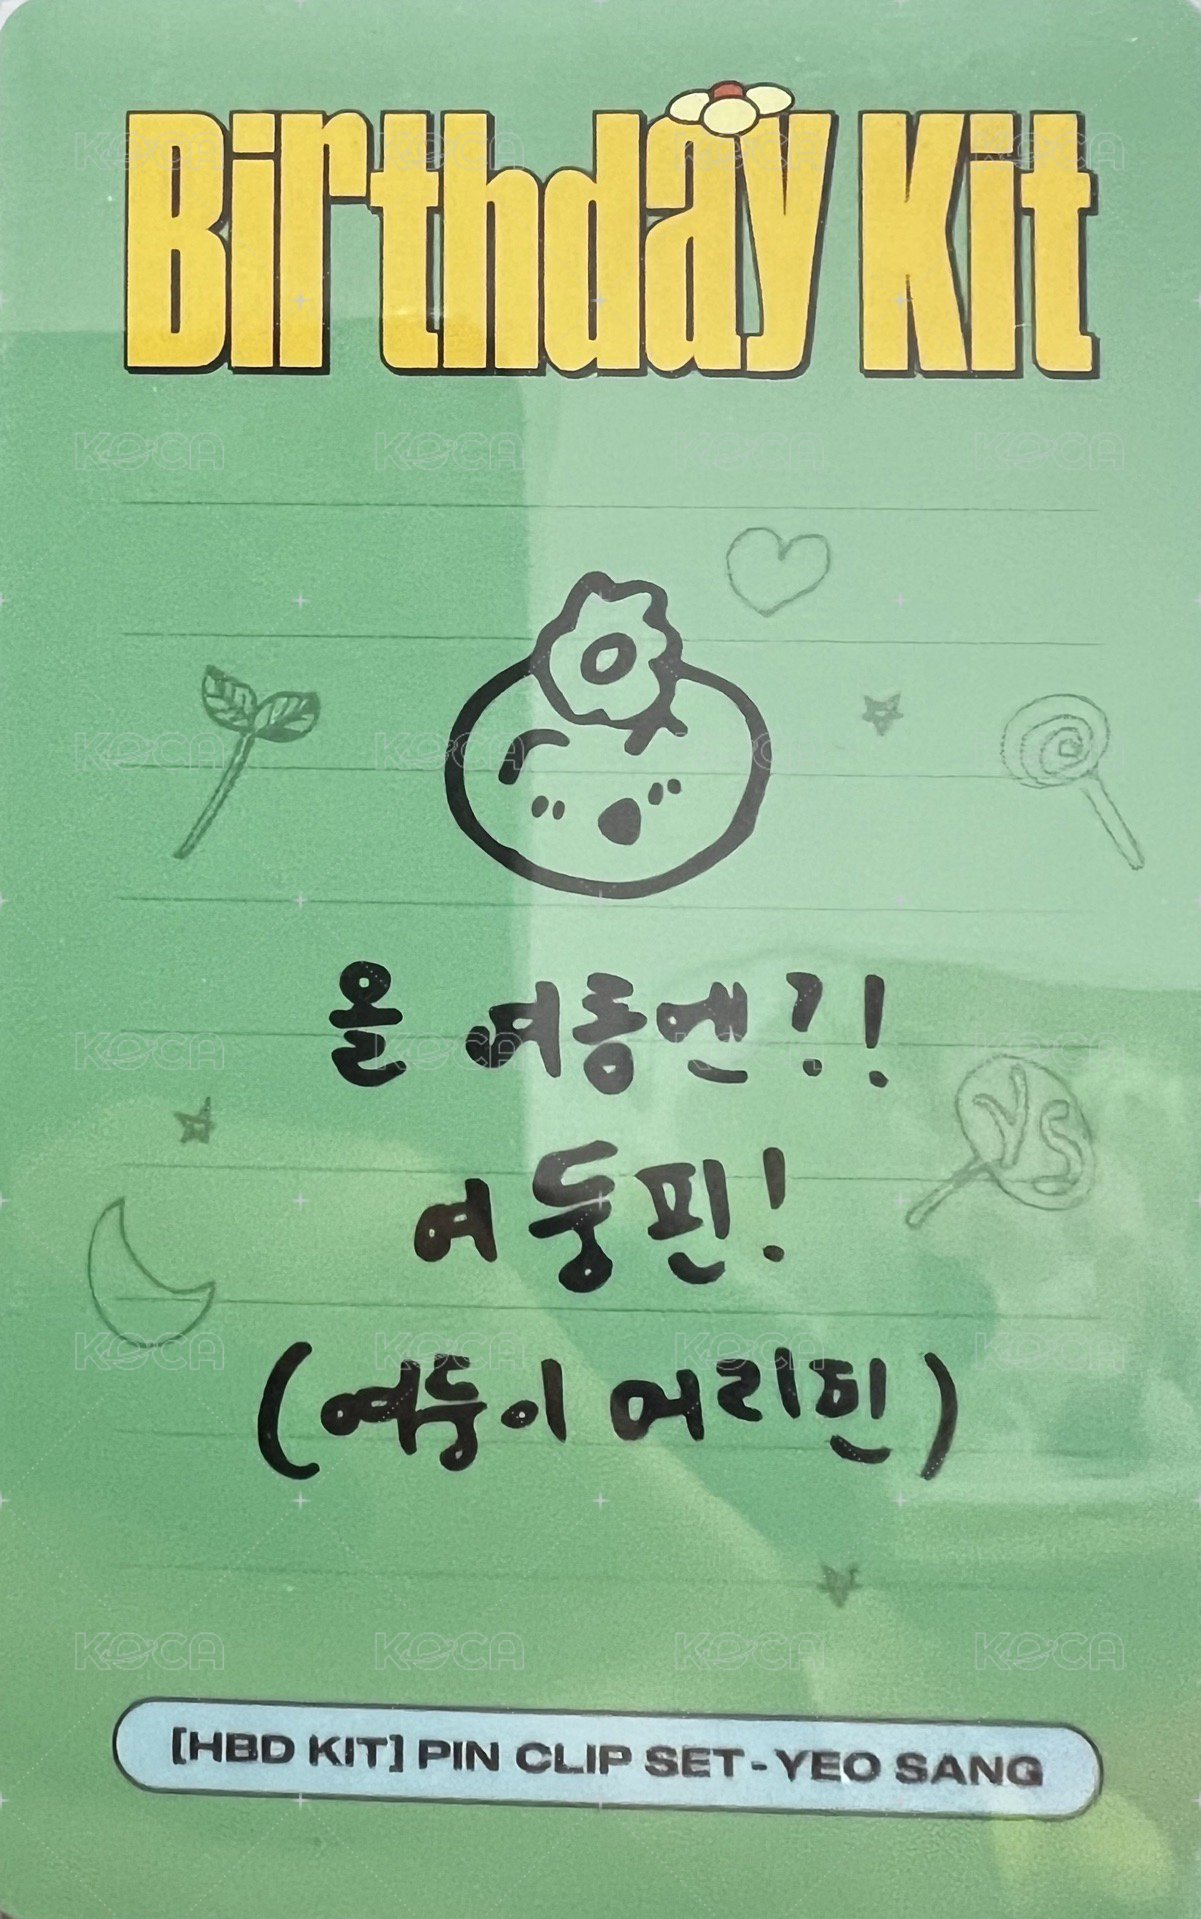 Birthday Kit
올 여름엔?!
여둥핀!
(여둥이 머리핀)
YS
[HBD KIT] PIN CLIP SET - YEO SANG
KOCA